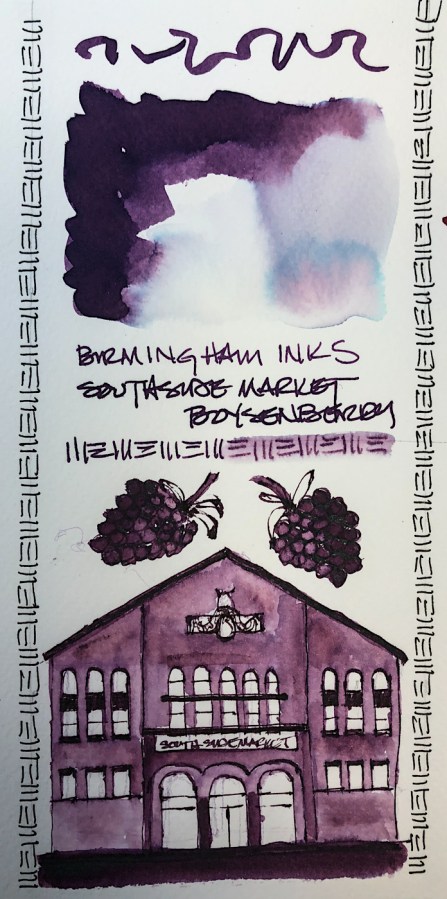 BIRMINGHAM INKS
SOUTHSIDE MARKET
BOYSENBERRY
SOUTH SIDE MARKET